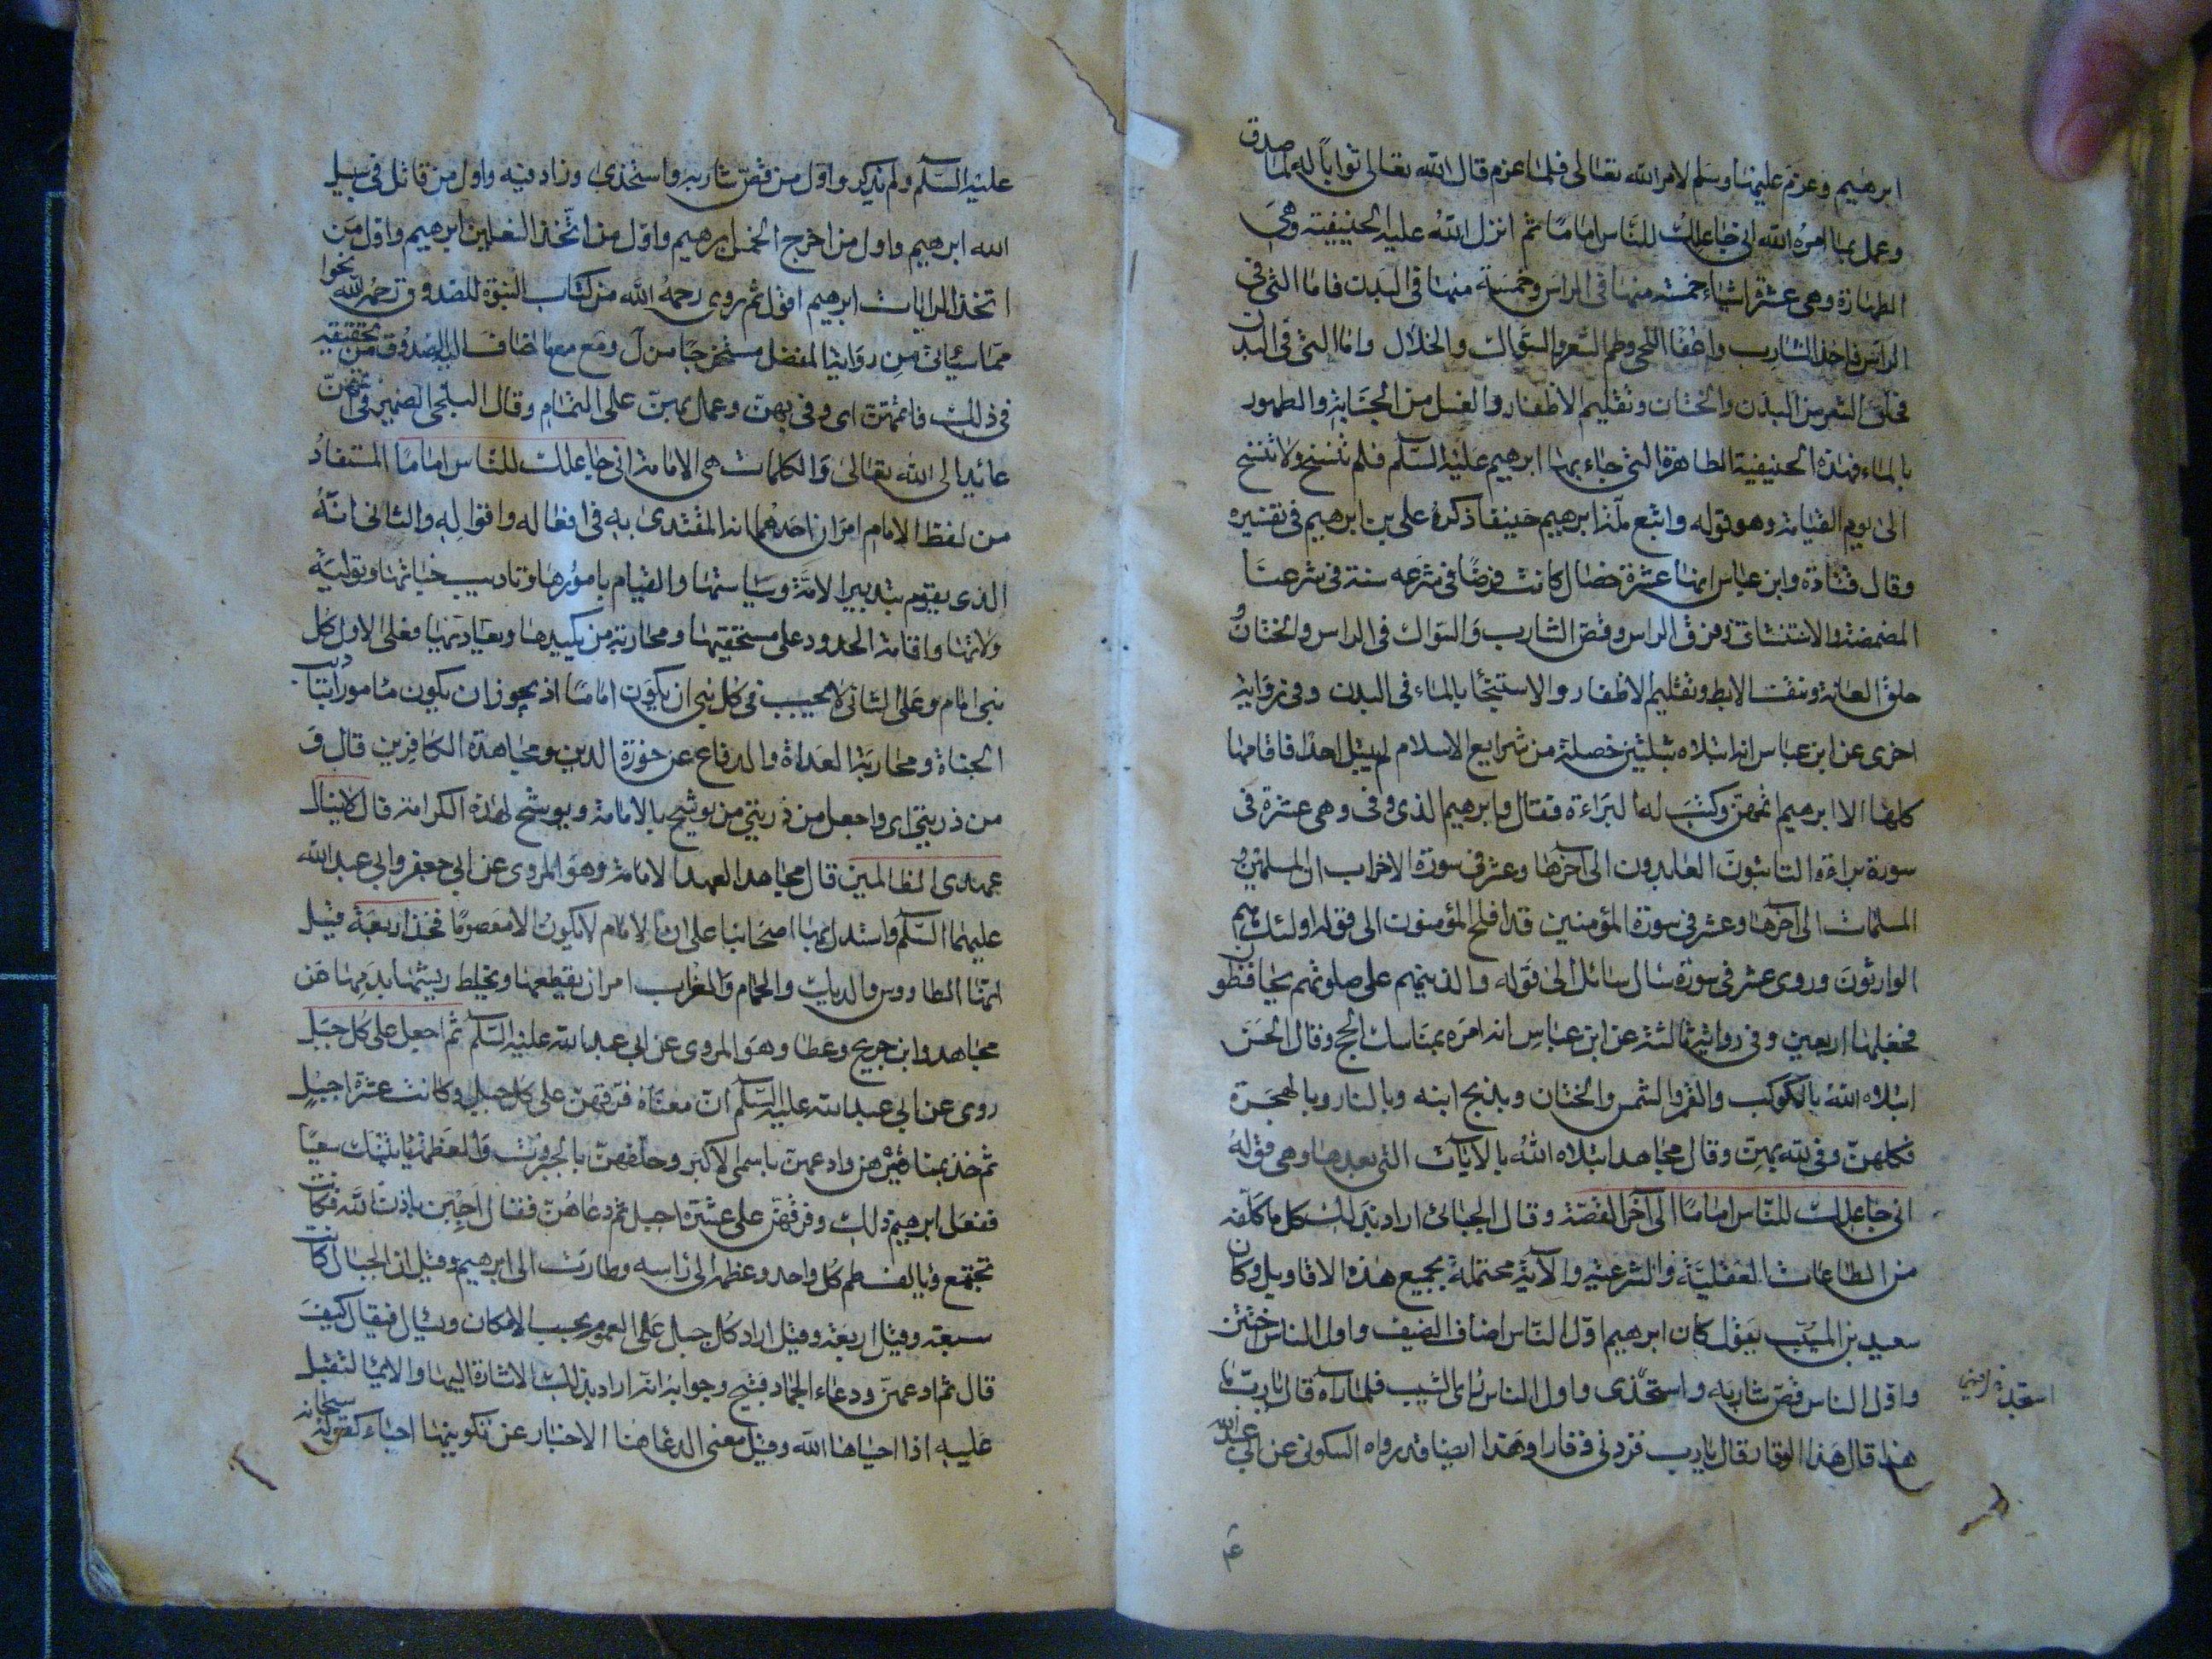 ابرهيم وعزم عليها وسلم لامر الله تعالى فلما عزم قال الله تعالى ثواباً له لما صدق
وعمل بما امره الله انى جاعلك للناس اماما ثم انزل الله عليه الحنيفية وهى
الطهارة وهى عشرة اشياء خمسة منها فى الراس وخمسة منها فى البدن فاما التى فى
الراس فاخذ الشارب واعفا اللحى وطم الشعر والسواك والخلال واما التى فى البدن
فحلق الشعر من البدن والختان وتقليم الاظفار والغسل من الجنابة والطهور
بالماء فهذه الحنيفية الطاهرة التى جاء بها ابرهيم عليه السلم فلم تنسخ ولا تنسخ
الى يوم القيامة وهو قوله واتبع ملة ابرهيم حنيفا ذكره على بن ابرهيم فى تفسيره
وقال قتادة وابن عباس انها عشرة خصال كانت فرضًا فى شرعه سنة فى شرعنا
المضمضة والاستنشاق وفرق الراس وقص الشارب والسواك فى الراس والختان
حلق العانة ونتف الابط وتقليم الاظفار والاستنجا بالماء فى البدن وفى رواية
اخرى عن ابن عباس انه ابتلاه بثلثين خصلة من شرايع الاسلام لم يبتل احدًا فاقامها
كلها الا ابرهيم اتمهن وكتب له البراءة فقال وابرهيم الذى وفى وهى عشرة فى
سورة براءة التائبون العابدون الى آخرها وعشر فى سورة الاحزاب ان المسلمين و
المسلمات الى آخرها وعشر فى سورة المؤمنين قد افلح المؤمنون الى قوله اولئك هم
الوارثون وروى عشر فى سورة سال سائل الى قوله والذينهم على صلوتهم يحافظون
فجعلها اربعين وفى رواية ثالثة عن ابن عباس انه امره بمناسك الحج وقال الحسن
ابتلاه الله بالكوكب والقمر والشمس والختان وبذبح ابنه وبالنار وبالهجرة
فكلهن وفى لله بهن وقال مجاهد ابتلاه الله بالايات التى بعدها وهى قوله
انى جاعلك للناس اماما الى آخر القصة وقال الجبائى اراد بذلك كل ما كلفه
من الطاعات العقلية والشرعية والآية محتملة بجميع هذه الاقاويل وكان
سعيد بن المسيب يقول كان ابرهيم اول الناس اضاف الضيف واول الناس ختتن
واول الناس قص شاربه واستحذى واول الناس راى الشيب فلما رآه قال يا رب ما
هذا قال هذا الوقار قال يا رب فزدنى وقارا وهذا ايضا قد رواه السكونى عن ابى عبد الله
عليه السلم ولم يذكر واول من قص شاربه واستحذى وزاد فيه واول من قاتل فى سبيل
الله ابرهيم واول من اخرج الخمس ابرهيم واول من اتخذ النعلين ابرهيم واول من
اتخذ الرايات ابرهيم اقول ثم روى رحمه الله من كتاب النبوة للصدوق رحمه الله نحوا
مما سيأتى من رواية المفضل مستخرجًا من ل و مع مع ما اضاف اليه الصدوق من تحقيقه
فى ذلك فاتمهن اى وفى بهن وعمل بهن على التمام وقال البلخى الضمير فى اتمهن
عائد الى الله تعالى والكلمات هى الامامة انى جاعلك للناس اماما المستفاد
من لفظ الامام امران احدهما انه المقتدى به فى افعاله واقواله والثانى انه
الذى يقوم بتدبير الامة وسياستها والقيام بامورها وتاديب جناتها وتولية
ولاتها واقامة الحدود على مستحقيها ومحاربة من يكيدها ويعاديها فعلى الاول كل
نبى امام وعلى الثانى لا يجب فى كل نبى ان يكون اماما اذ يجوز ان لا يكون مامورا بتاديب
الجناة ومحاربة العداة والدفاع عن حوزة الدين ومجاهدة الكافرين قال و
من ذريتى اى واجعل من ذريتى من يوشح بالامامة ويوشح لهذه الكرامة قال لا ينال
عهدى الظالمين قال مجاهد العهد الامامة وهو المروى عن ابى جعفر وابى عبد الله
عليهما السلم واستدل بها اصحابنا على ان الامام لا يكون الا معصومًا فخذ اربعة قيل
انها الطاووس والديك والحمام والغراب امر ان يقطعها ويخلط ريشها بدمها عن
مجاهد وابن جريح وعطا وهو المروى عن ابى عبد الله عليه السلم ثم اجعل على كل جبل
روى عن ابى عبد الله عليه السلم ان معناه فرقهن على كل جبل وكانت عشرة اجبل
ثم خذ بمناقيرهن وادعهن باسمى الاكبر وحلفهن بالجبروت والعظمة ياتينك سعيًا
ففعل ابرهيم ذلك وفرقهن على عشرة اجبل ثم دعاهن فقال اجبن باذن الله فكانت
تجتمع ويالف لحم كل واحد وعظمه الى راسه وطارت الى ابرهيم وقيل ان الجبال كانت
سبعة وقيل اربعة وقيل اراد كل جبل على العموم بحسب الامكان ويسال فيقال كيف
قال ثم ادعهن ودعاء الجماد قبيح وجوابه انه اراد بذلك الاشارة اليها والايما لتقبل
عليه اذا احياها الله وقيل معنى الدعا هنا الاخبار عن تكوينها احياء كقوله سبحانه